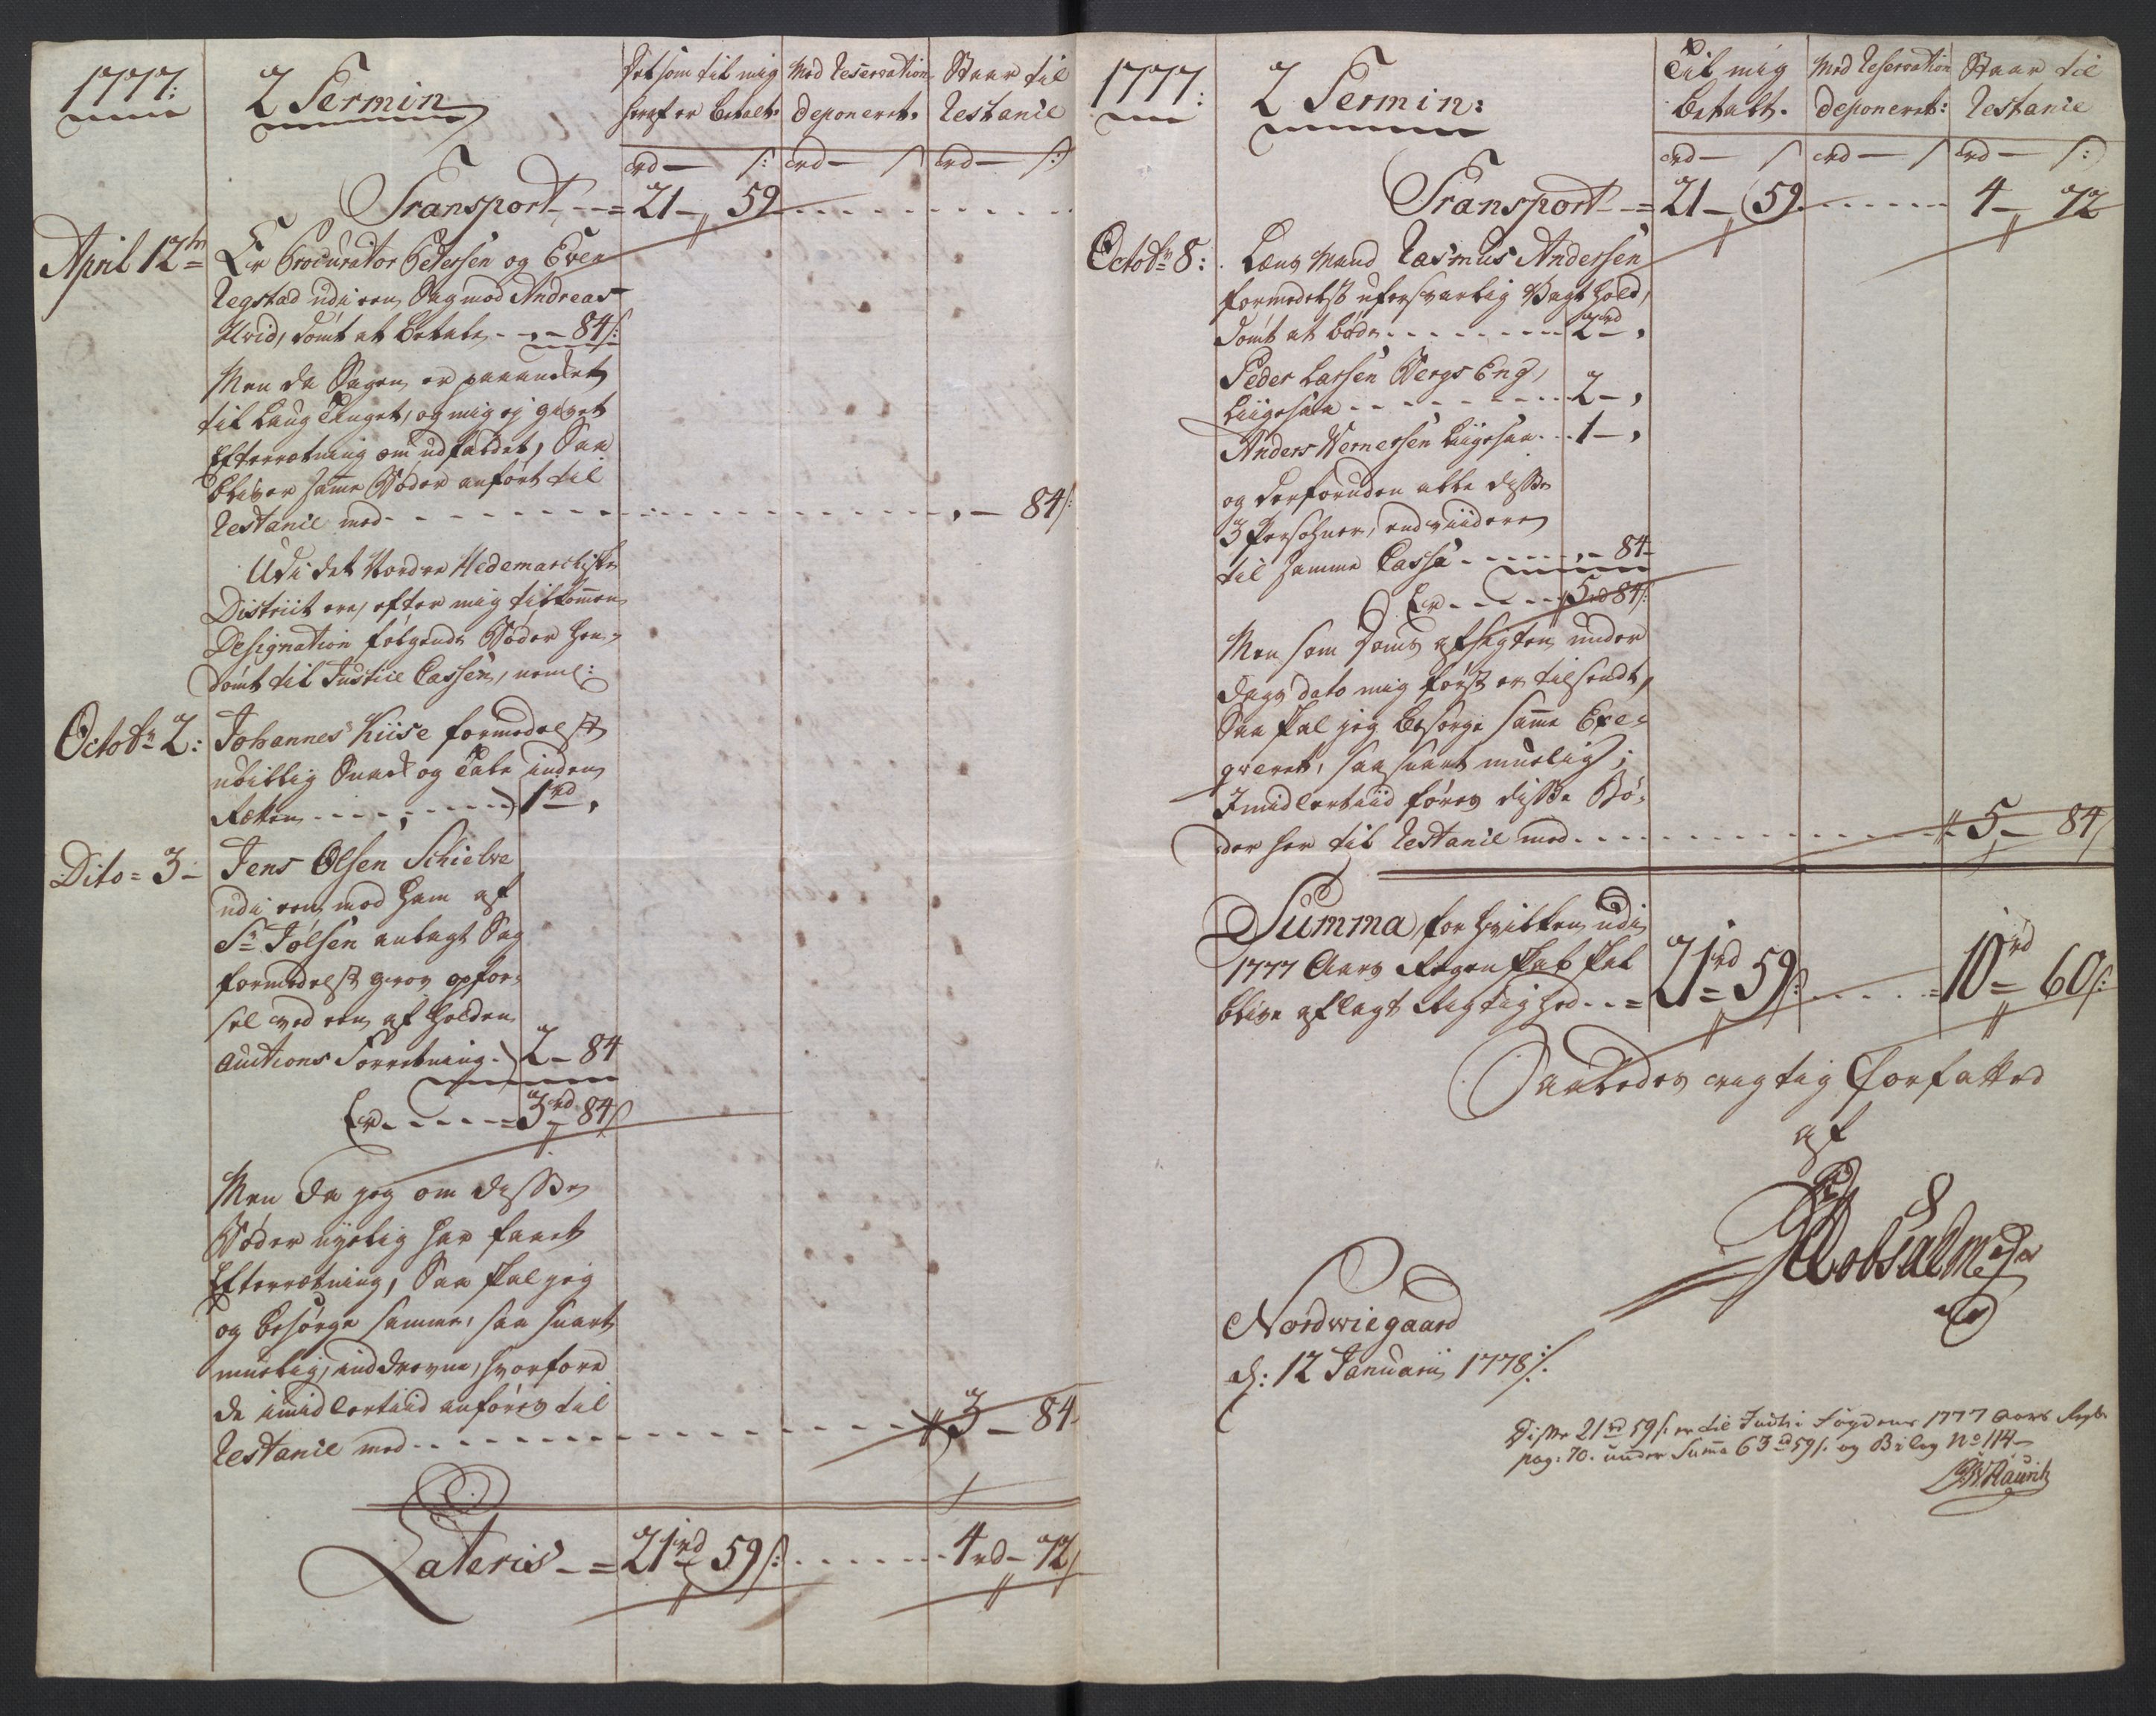 1777:
2 Termin
det som til mig
heraf er betalt.
Med Reservation
deponeret.
Staar til
Restance
rd — s:
rd — s
rd — s:
Transport - - = 21 - 59
April 12te =
Er Procurator Petersen og Even
Regstad udi een Sag mod Andreas
Hvid, dømt at betale - - , - 84 s:
Men da Sagen er paaandket
til Laug Tinget, og mig ej givet
Efterretning om udfaldet, Saa
bliver samme Bøder anført til
Restance med - - - - - , - 84 s:
Udi det Nordre Hedemarchiske
District ere, efter mig tilkommen
Designation følgende Bøder hen-
dømt til Justice Cassen, neml:
Octobr 2:
Johannes Kiise formedelst
ubillig Snak og Tale inden
Retten - - - - - 1 rd ,
Dito = 3 -
Jens Olsen Schielve
udi een mod ham af
Sr Jølsen anlagt Sag
formedelst grov opfør-
sel ved een af holden
Auctions Forretning. 2 - 84
Er - - - - = 3 rd 84 s
Men da jeg om disse
Bøder nyelig har faaet
Efterretning, Saa skal jeg
og besørge samme, saa snart
muelig, inddrevne, hvorfore
de imidlertiid anføres til
Restance med - - - - - 3 - 84
Lateris - = 21 rd 59 s: - - - - 4 rd - 72 s
1777:
2 Termin:
Til mig
betalt.
Med Reservation
deponeret:
Staar til
Restance
rd — s
rd — s
rd — s:
Transport - = 21 - 59 - - - - 4 - 72
Octobr 8:
Lens Mand Rasmus Andersen
formedelst uforsvarlig Vagt hold,
dømt at bøde - - - - - 2 rd ,
Peder Larsen Bergs Eng,
liigesaa - - - - - 2 - ,
Anders Wernersen liigesaa - - 1 - ,
og desforuden alle disse
3 Persohner, end viidere
til samme Cassa - - - - , - 84 -
Er - - - - 5 rd 84 s:
Men som Doms afsigten under
dags dato mig først er tilsendt,
Saa skal jeg besørge samme Exe-
qveret, saa snart muelig;
Imidlertiid føres disse Bø-
der her til Restance med - - - - - 5 - 84 s
Summa for hvilken udi
1777 Aars Regenskab skal
blive aflagt Rigtighed - - = 21 rd = 59 s: - - - - = 10 rd = 60 s:
Saaledes rigtig Forfatted
af
Nordwiegaard
d: 12 Januarii 1778 /:
Disse 21 rd 59 s. er til Indtægt Fogdens 1777 Aars Regn.
pag: 70. under Suma 63 rd 59 s. og Bilag No 114 -